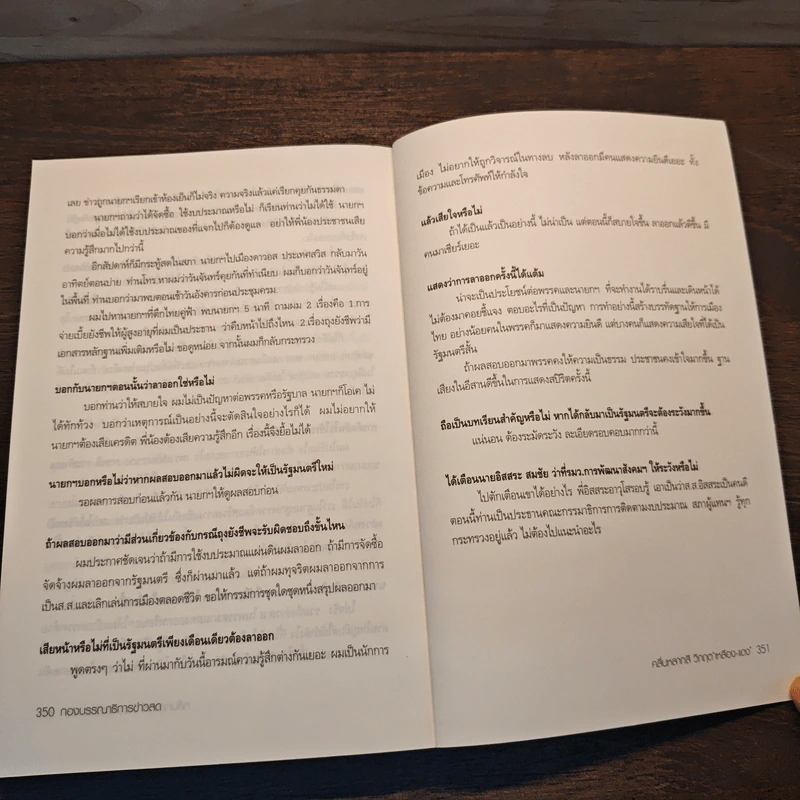 เลย ข่าวถูกนายกฯเรียกเข้าห้องเย็นก็ไม่จริง ความจริงแล้วแค่เรียกคุยกันธรรมดา
นายกฯถามว่าได้จัดซื้อ ใช้งบประมาณหรือไม่ ก็เรียนท่านว่าไม่ได้ใช้ นายกฯ
บอกว่าเมื่อไม่ได้ใช้งบประมาณของที่แจกไปก็ต้องดูแล อย่าให้พี่น้องประชาชนเสีย
ความรู้สึกมากไปกว่านี้
อีกสัปดาห์ก็มีกระทู้สดในสภา นายกฯไปเมืองดาวอส ประเทศสวิส กลับมาวัน
อาทิตย์ตอนบ่าย ท่านโทร.หาผมว่าวันจันทร์คุยกันที่ทำเนียบ ผมก็บอกว่าวันจันทร์อยู่
ในพื้นที่ ท่านบอกว่ามาพบตอนเช้าวันอังคารก่อนประชุมครม.
ผมไปหานายกฯที่ตึกไทยคู่ฟ้า พบนายกฯ 5 นาที ถามผม 2 เรื่องคือ 1.การ
จ่ายเบี้ยยังชีพให้ผู้สูงอายุที่ผมเป็นประธาน ว่าคืบหน้าไปถึงไหน 2.เรื่องถุงยังชีพว่ามี
เอกสารหลักฐานเพิ่มเติมหรือไม่ ขอดูหน่อย จากนั้นผมก็กลับกระทรวง
บอกกับนายกฯตอนนั้นว่าลาออกใช่หรือไม่
บอกท่านว่าให้สบายใจ ผมไม่เป็นปัญหาต่อพรรคหรือรัฐบาล นายกฯก็โอเค ไม่
ได้ทักท้วง บอกว่าเหตุการณ์เป็นอย่างนี้จะตัดสินใจอย่างไรก็ได้ ผมไม่อยากให้
นายกฯต้องเสียเครดิต พี่น้องต้องเสียความรู้สึกอีก เรื่องนี้จึงยื้อไม่ได้
นายกฯบอกหรือไม่ว่าหากผลสอบออกมาแล้วไม่ผิดจะให้เป็นรัฐมนตรีใหม่
รอผลการสอบก่อนแล้วกัน นายกฯให้ดูผลสอบก่อน
ถ้าผลสอบออกมาว่ามีส่วนเกี่ยวข้องกับกรณีถุงยังชีพจะรับผิดชอบถึงขั้นไหน
ผมประกาศชัดเจนว่าถ้ามีการใช้งบประมาณแผ่นดินผมลาออก ถ้ามีการจัดซื้อ
จัดจ้างผมลาออกจากรัฐมนตรี ซึ่งก็ผ่านมาแล้ว แต่ถ้าผมทุจริตผมลาออกจากการ
เป็นส.ส.และเลิกเล่นการเมืองตลอดชีวิต ขอให้กรรมการชุดใดชุดหนึ่งสรุปผลออกมา
เสียหน้าหรือไม่ที่เป็นรัฐมนตรีเพียงเดือนเดียวต้องลาออก
พูดตรงๆ ว่าไม่ ที่ผ่านมากับวันนี้อารมณ์ความรู้สึกต่างกันเยอะ ผมเป็นนักการ
350 กองบรรณาธิการข่าวสด
เมือง ไม่อยากให้ถูกวิจารณ์ในทางลบ หลังลาออกมีคนแสดงความยินดีเยอะ ทั้ง
ข้อความและโทรศัพท์ให้กำลังใจ
แล้วเสียใจหรือไม่
ถ้าได้เป็นแล้วเป็นอย่างนี้ ไม่น่าเป็น แต่ตอนนี้ก็สบายใจขึ้น ลาออกแล้วดีขึ้น มี
คนมาเชียร์เยอะ
แสดงว่าการลาออกครั้งนี้ได้แต้ม
น่าจะเป็นประโยชน์ต่อพรรคและนายกฯ ที่จะทำงานได้ราบรื่นและเดินหน้าได้
ไม่ต้องมาคอยชี้แจง ตอบอะไรที่เป็นปัญหา การทำอย่างนี้สร้างบรรทัดฐานให้การเมือง
ไทย อย่างน้อยคนในพรรคก็มาแสดงความยินดี แต่บางคนก็แสดงความเสียใจที่ได้เป็น
รัฐมนตรีสั้น
ถ้าผลสอบออกมาพรรคคงให้ความเป็นธรรม ประชาชนคงเข้าใจมากขึ้น ฐาน
เสียงในอีสานดีขึ้นในการแสดงสปิริตครั้งนี้
ถือเป็นบทเรียนสำคัญหรือไม่ หากได้กลับมาเป็นรัฐมนตรีจะต้องระวังมากขึ้น
แน่นอน ต้องระมัดระวัง ละเอียดรอบคอบมากกว่านี้
ได้เตือนนายอิสสระ สมชัย ว่าที่รมว.การพัฒนาสังคมฯ ให้ระวังหรือไม่
ไปตักเตือนเขาได้อย่างไร พี่อิสสระอาวุโสรอบรู้ เอาเป็นว่าส.ส.อิสสระเป็นคนดี
ตอนนี้ท่านเป็นประธานคณะกรรมาธิการการติดตามงบประมาณ สภาผู้แทนฯ รู้ทุก
กระทรวงอยู่แล้ว ไม่ต้องไปแนะนำอะไร
คลื่นหลากสี วิกฤต'เหลือง-แดง' 351